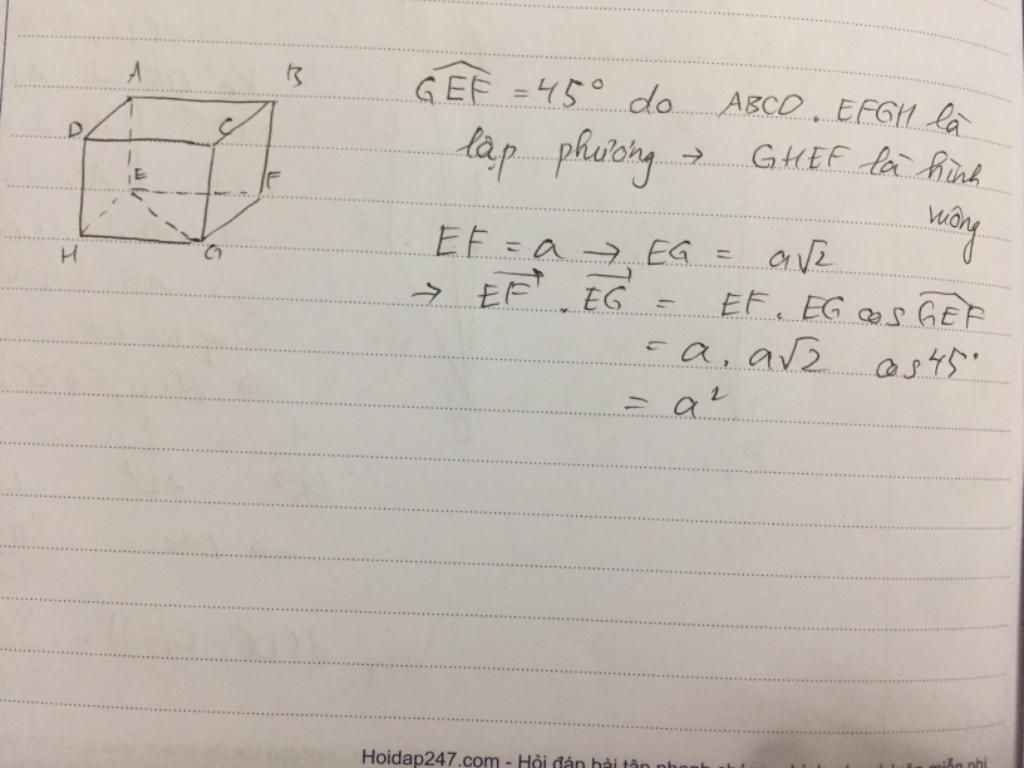 A B
D C
E F
H G
GEF = 45° do ABCD.EFGH là
lập phương → GHEF là hình
vuông
EF = a → EG = a√2
→ EF . EG = EF . EG cos GEF
= a . a√2 cos 45°
= a²
Hoidap247.com - Hỏi đáp bài tập nhanh chóng